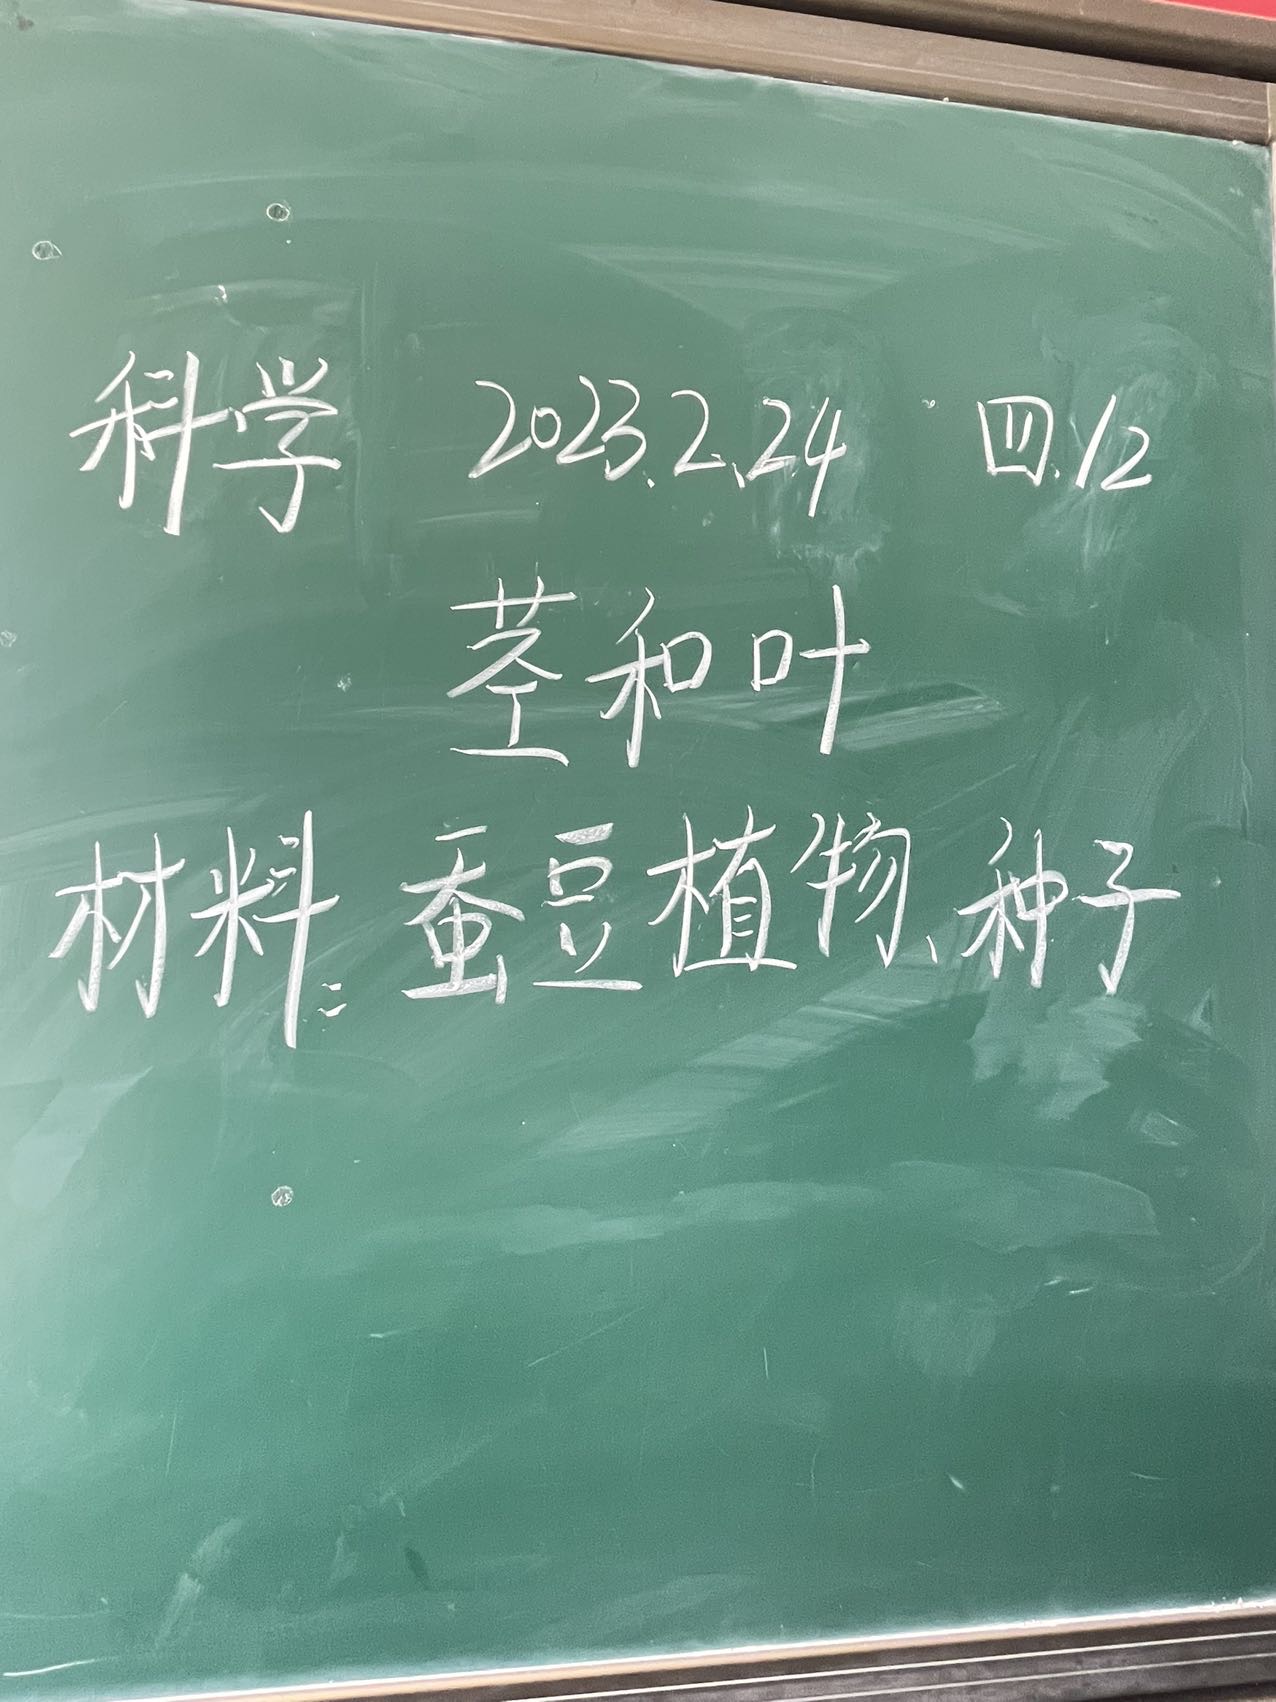 科学 2023.2.24 四.12
茎和叶
材料：蚕豆植物、种子